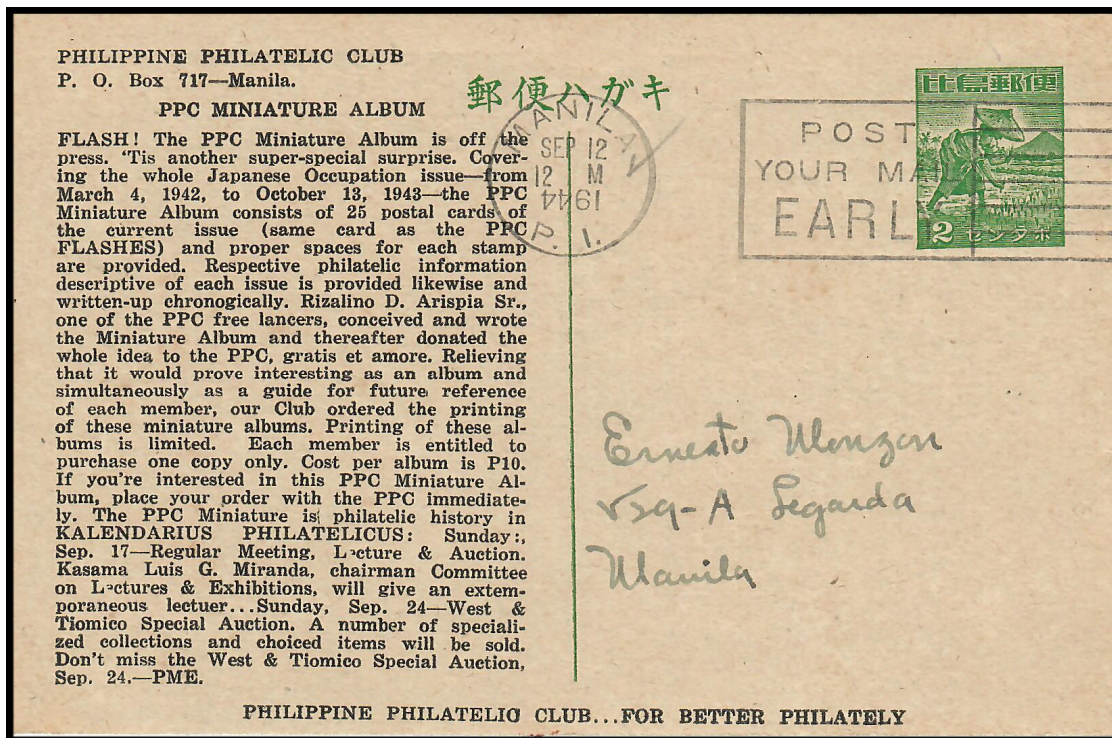 PHILIPPINE PHILATELIC CLUB
P. O. Box 717—Manila.
PPC MINIATURE ALBUM
FLASH! The PPC Miniature Album is off the
press. 'Tis another super-special surprise. Cover-
ing the whole Japanese Occupation issue—from
March 4, 1942, to October 13, 1943—the PPC
Miniature Album consists of 25 postal cards of
the current issue (same card as the PPC
FLASHES) and proper spaces for each stamp
are provided. Respective philatelic information
descriptive of each issue is provided likewise and
written-up chronogically. Rizalino D. Arispia Sr.,
one of the PPC free lancers, conceived and wrote
the Miniature Album and thereafter donated the
whole idea to the PPC, gratis et amore. Relieving
that it would prove interesting as an album and
simultaneously as a guide for future reference
of each member, our Club ordered the printing
of these miniature albums. Printing of these al-
bums is limited. Each member is entitled to
purchase one copy only. Cost per album is P10.
If you're interested in this PPC Miniature Al-
bum, place your order with the PPC immediate-
ly. The PPC Miniature is philatelic history in
KALENDARIUS PHILATELICUS: Sunday:,
Sep. 17—Regular Meeting, Lecture & Auction.
Kasama Luis G. Miranda, chairman Committee
on Lectures & Exhibitions, will give an extem-
poraneous lectuer...Sunday, Sep. 24—West &
Tiomico Special Auction. A number of speciali-
zed collections and choiced items will be sold.
Don't miss the West & Tiomico Special Auction,
Sep. 24.—PME.
郵便ハガキ
MANILA
SEP 12
12 M
1944
P. I.
POST
YOUR MAIL
EARLY
比島郵便
2 センタボ
Ernesto Monzon
A Legarda
Manila
PHILIPPINE PHILATELIC CLUB...FOR BETTER PHILATELY